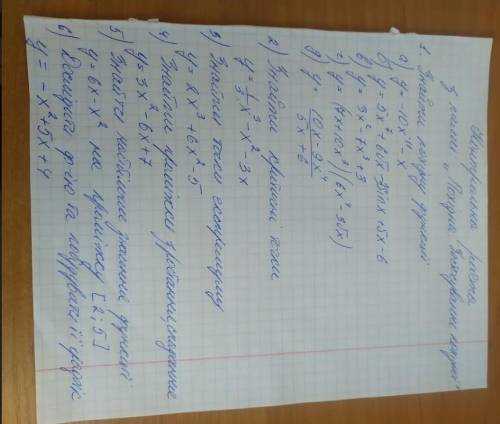 Контрольна робота
З теми „Похідна. Застосування похідної"
1. Знайти похідну функцій
а) y = -10x⁴ - x
б) y = 5x² + 6√x - 3sinx + 5x - 6
в) y = 3x² - 7x³ + 3
г) y = (4x + 10x²)(6x² - 3√x)
д) y = (10x - 9x⁴)/(5x + 6)
2) Знайти критичні точки
y = 1/3 x³ - x² - 3x
3) Знайти точки екстремуму
y = 2x³ + 6x² - 5
4) Знайти проміжки зростання, спадання
y = 3x² - 6x + 7
5) Знайти найбільше значення функції
y = 6x - x² на проміжку [2; 5]
6) Дослідити ф-ію та побудувати її графік
y = -x² + 5x + 4